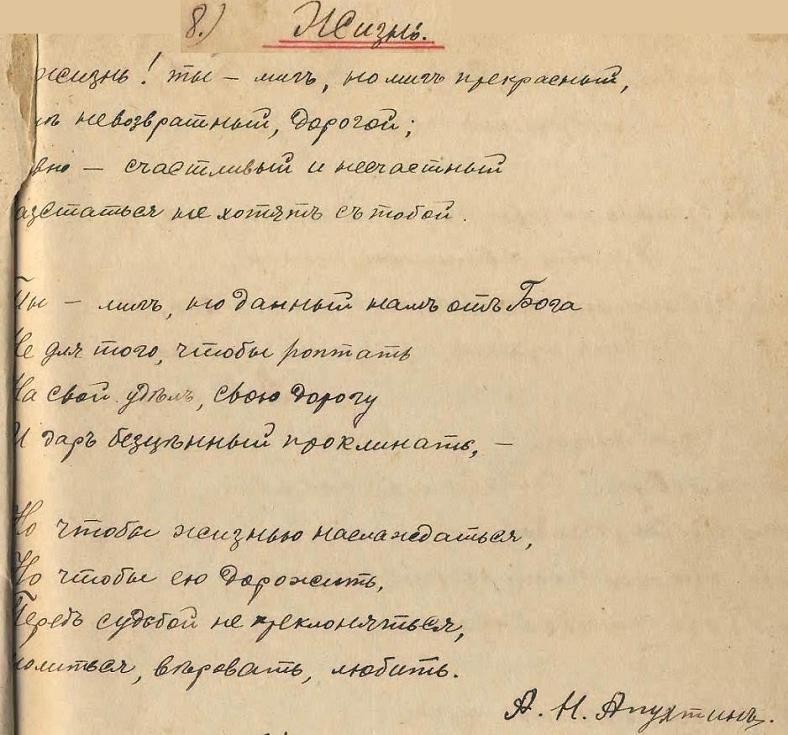 8.) Жизнь.
жизнь! ты – мигъ, но мигъ прекрасный,
невозвратный, дорогой;
– счастливый и несчастный
азстаться не хотятъ съ тобой.
Ты – мигъ, но данный намъ отъ Бога
Не для того, чтобы роптать
На свой удѣлъ, свою дорогу
И даръ безцѣнный проклинать, –
Но чтобы жизнью наслаждаться,
Но чтобы ею дорожить,
Передъ судьбой не преклоняться,
молиться, вѣровать, любить.
А. Н. Апухтинъ.